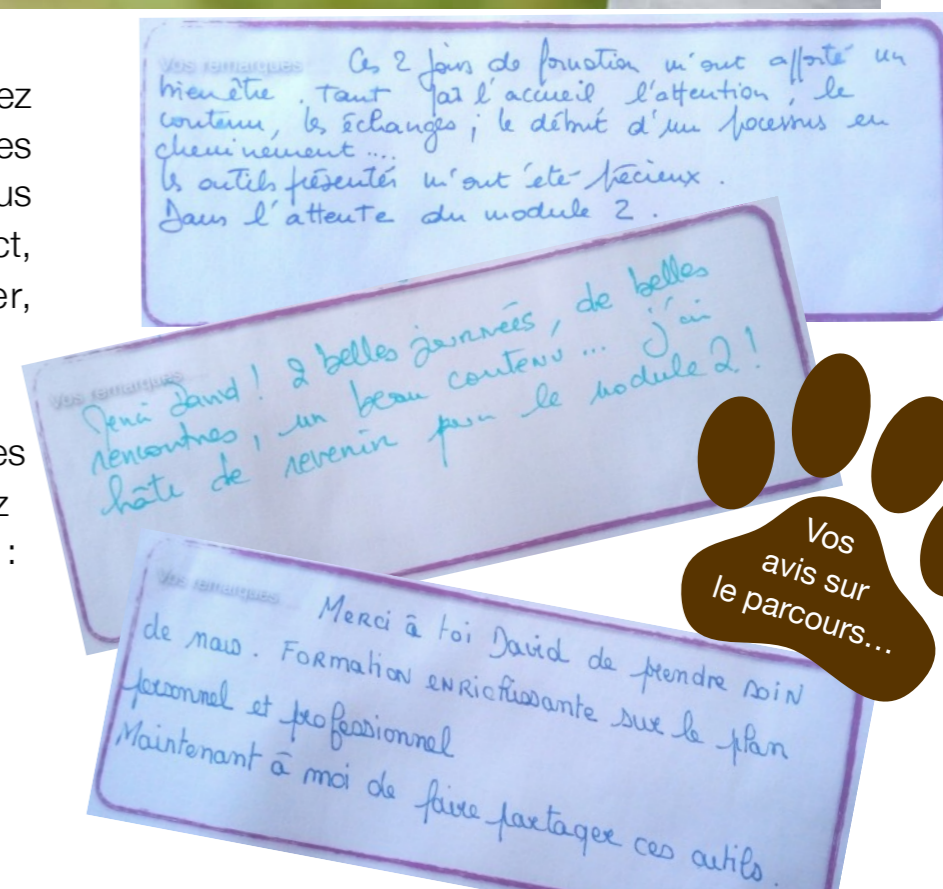 ez
es
us
ct,
er,
es
z
:
Vos remarques
Ces 2 jours de formation m'ont apporté un
bien être. Tant par l'accueil l'attention, le
contenu, les échanges ; le début d'un processus en
cheminement....
les outils présentés m'ont été précieux.
Dans l'attente du module 2.
Vos remarques
Merci David ! 2 belles journées, de belles
rencontres, un beau contenu... j'ai
hâte de revenir pour le module 2 !
Vos
avis sur
le parcours...
Vos remarques
Merci à toi David de prendre soin
de nous. Formation enrichissante sur le plan
personnel et professionnel
Maintenant à moi de faire partager ces outils.